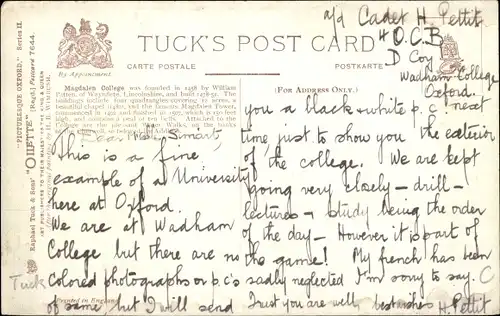 a/d Cadet H. Pettit
4 O.C.B
D Coy
Wadham College
Oxford.
TUCK'S POST CARD
CARTE POSTALE
POSTKARTE
By Appointment
(FOR ADDRESS ONLY.)
"PICTURESQUE OXFORD." Series II.
"OILETTE" [Regd.] Postcard 7644.
Raphael Tuck & Sons'
Magdalen College was founded in 1458 by William
Patten, of Waynflete, Lincolnshire, and built 1458-81. The
buildings include four quadrangles covering 12 acres, a
beautiful chapel, and the famous Magdalen Tower,
Dear Smart,
This is a fine
example of a University
here at Oxford.
We are at Wadham
College but there are no
colored photographs or p.c's
of same, but I will send
you a black & white p.c next
time just to show you the exterior
of the college. We are kept
going very closely - drill -
lectures - study being the order
of the day - However it is part of
the game! My french has been
sadly neglected I'm sorry to say.
Trust you are well, best wishes H. Pettit
Tuck
Printed in England